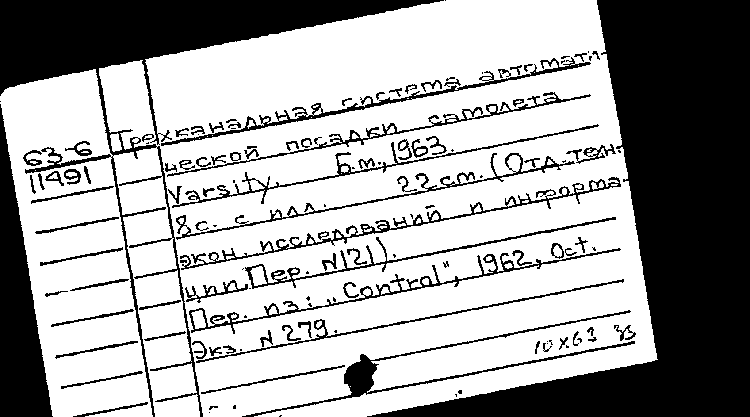 63-6
11491
Трехканальная система автомати-
ческой посадки самолета
Varsity. Б.м., 1963.
8с. с илл. 22 см. (Отд. техн.-
экон. исследований и информа-
ции. Пер. N121).
Пер. из: „Control", 1962, Oct.
Экз. N 279.
10 X 63